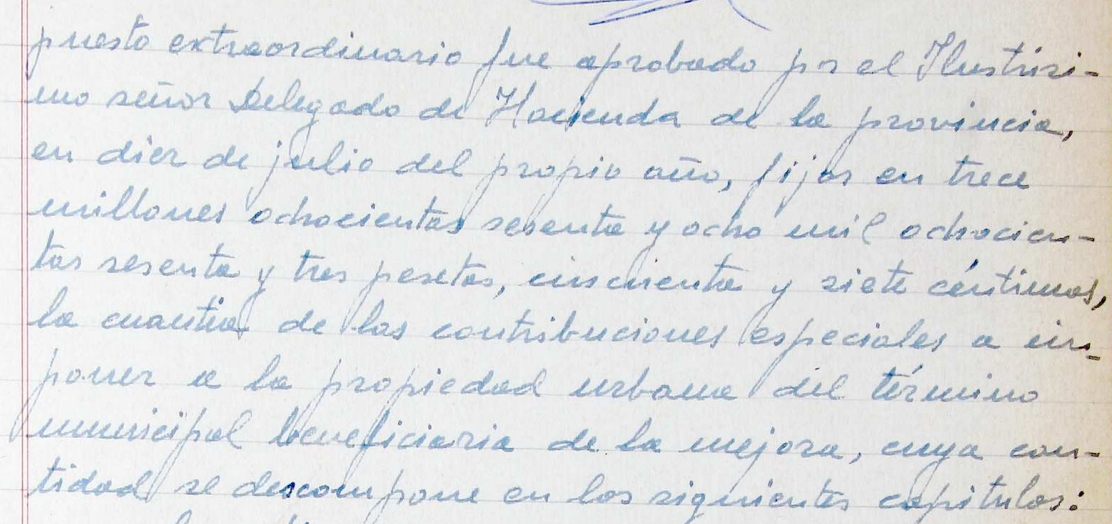 puesto extraordinario fue aprobado por el Ilustrísi-
mo señor Delegado de Hacienda de la provincia,
en diez de julio del propio año, fijar en trece
millones ochocientas sesenta y ocho mil ochocien-
tas sesenta y tres pesetas, cincuenta y siete céntimos,
la cuantía de las contribuciones especiales a im-
poner a la propiedad urbana del término
municipal beneficiaria de la mejora, cuya can-
tidad se descompone en los siguientes capítulos: